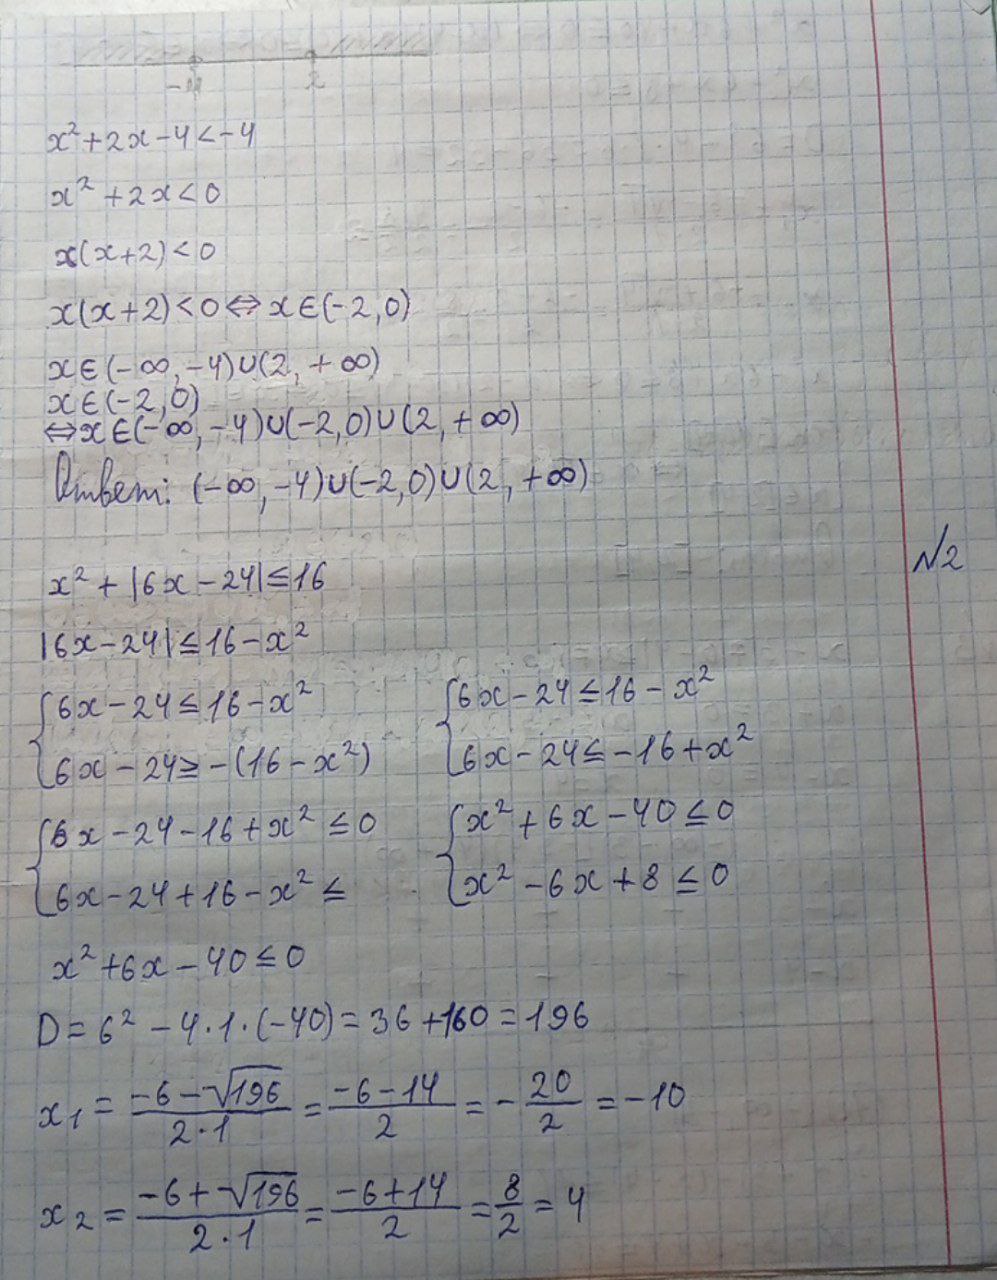 2
x² + 2x - 4 < -4
x² + 2x < 0
x(x+2) < 0
x(x+2) < 0 ⇔ x ∈ (-2, 0)
x ∈ (-∞, -4) ∪ (2, +∞)
x ∈ (-2, 0)
⇔ x ∈ (-∞, -4) ∪ (-2, 0) ∪ (2, +∞)
Ответ: (-∞, -4) ∪ (-2, 0) ∪ (2, +∞)
№2
x² + |6x - 24| ≤ 16
|6x - 24| ≤ 16 - x²
{6x - 24 ≤ 16 - x² {6x - 24 ≤ 16 - x²
{6x - 24 ≥ -(16 - x²) {6x - 24 ≤ -16 + x²
{6x - 24 - 16 + x² ≤ 0 {x² + 6x - 40 ≤ 0
{6x - 24 + 16 - x² ≤ {x² - 6x + 8 ≤ 0
x² + 6x - 40 ≤ 0
D = 6² - 4·1·(-40) = 36 + 160 = 196
x₁ = (-6 - √196)/(2·1) = (-6 - 14)/2 = -20/2 = -10
x₂ = (-6 + √196)/(2·1) = (-6 + 14)/2 = 8/2 = 4